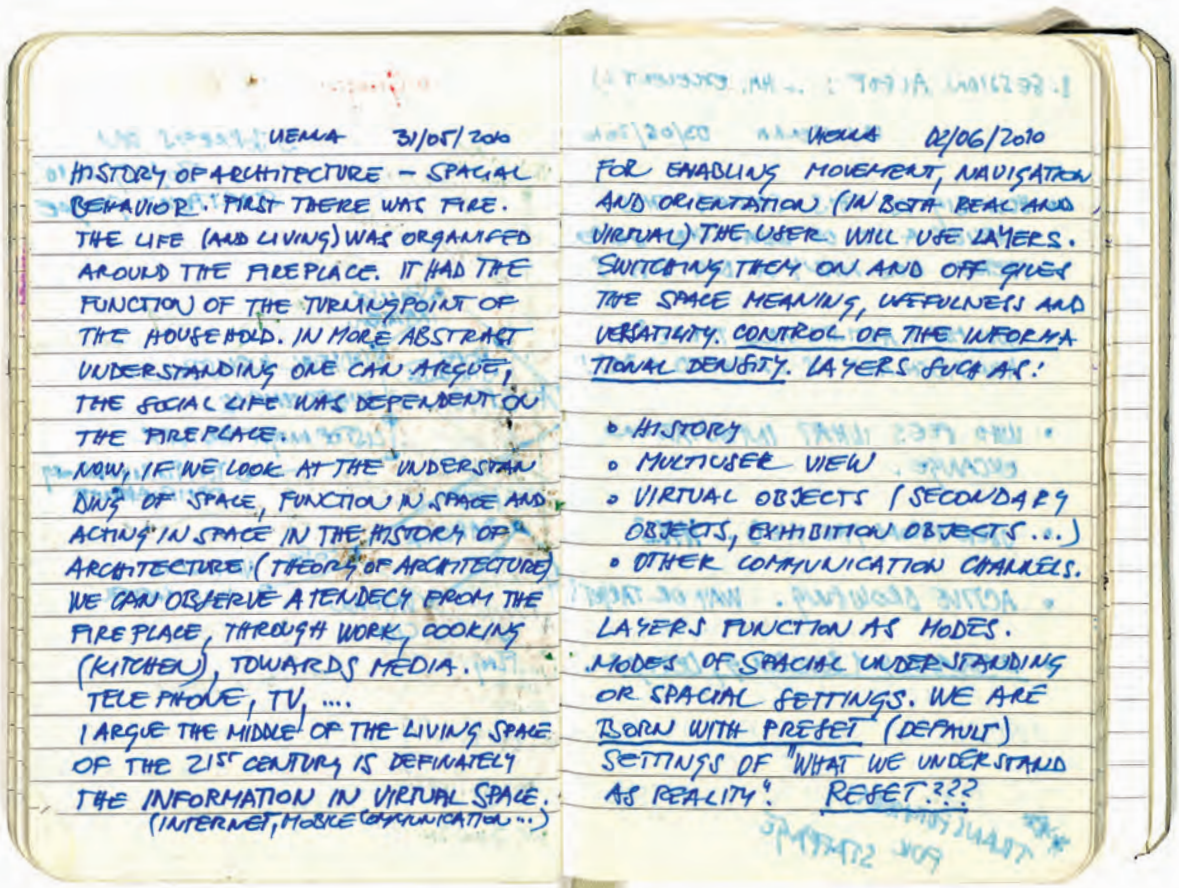 VIENNA 31/05/2010
HISTORY OF ARCHITECTURE – SPACIAL
BEHAVIOR. FIRST THERE WAS FIRE.
THE LIFE (AND LIVING) WAS ORGANISED
AROUND THE FIREPLACE. IT HAD THE
FUNCTION OF THE TURNINGPOINT OF
THE HOUSEHOLD. IN MORE ABSTRACT
UNDERSTANDING ONE CAN ARGUE,
THE SOCIAL LIFE WAS DEPENDENT ON
THE FIREPLACE.
NOW, IF WE LOOK AT THE UNDERSTAN
DING OF SPACE, FUNCTION IN SPACE AND
ACTING IN SPACE IN THE HISTORY OF
ARCHITECTURE (THEORY OF ARCHITECTURE)
WE CAN OBSERVE A TENDECY FROM THE
FIREPLACE, THROUGH WORK, COOKING
(KITCHEN), TOWARDS MEDIA.
TELEPHONE, TV, ....
I ARGUE THE MIDDLE OF THE LIVING SPACE
OF THE 21ST CENTURY IS DEFINATELY
THE INFORMATION IN VIRTUAL SPACE.
(INTERNET, MOBILE COMMUNICATION...)
VIENNA 02/06/2010
FOR ENABLING MOVEMENT, NAVIGATION
AND ORIENTATION (IN BOTH REAL AND
VIRTUAL) THE USER WILL USE LAYERS.
SWITCHING THEM ON AND OFF GIVES
THE SPACE MEANING, USEFULNESS AND
VERSATILITY. CONTROL OF THE INFORMA
TIONAL DENSITY. LAYERS SUCH AS:
• HISTORY
• MULTIUSER VIEW
• VIRTUAL OBJECTS (SECONDARY
OBJECTS, EXHIBITION OBJECTS...)
• OTHER COMMUNICATION CHANNELS.
LAYERS FUNCTION AS MODES.
MODES OF SPACIAL UNDERSTANDING
OR SPACIAL SETTINGS. WE ARE
BORN WITH PRESET (DEFAULT)
SETTINGS OF "WHAT WE UNDERSTAND
AS REALITY". RESET???